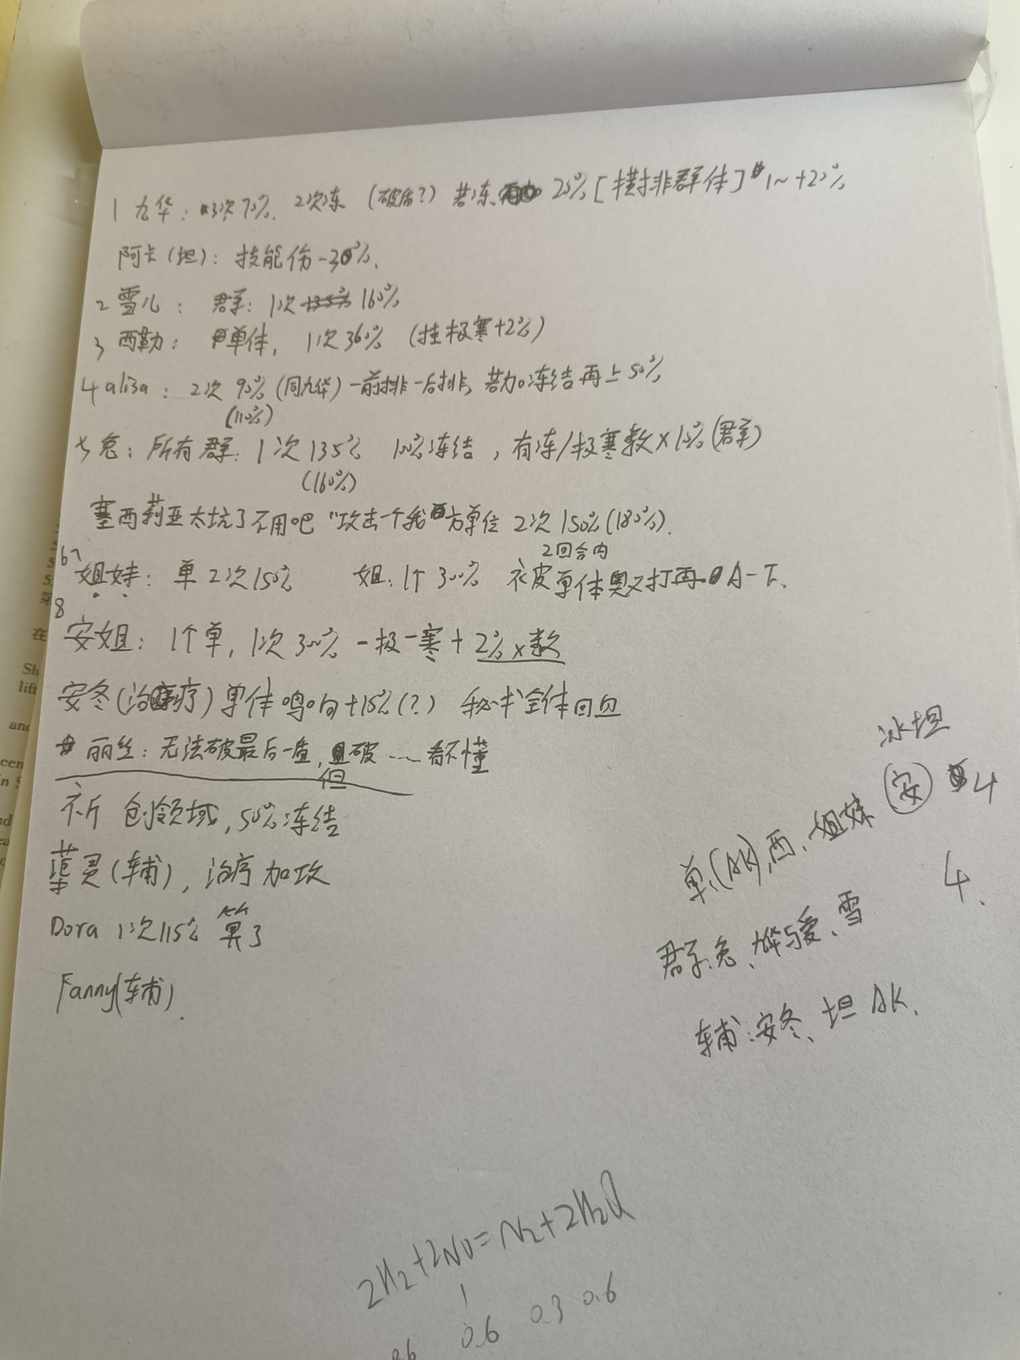 1 九华：3次70%. 2次冻 (破盾?) 若冻 20% [横排非群体] 1~+20%
阿卡(坦)：技能伤-30%.
2 雪儿：群：1次 135% 160%
3 西勒：单体，1次360% (挂极寒+2%)
4 alisa：2次90%(同九华)一前排一后排，若加冻结再上50%
(110%)
5 兔：所有群：1次135% 10%冻结，有冻/极寒数×10%(群)
(160%)
塞西莉亚太坑了不用吧"攻击一个我方单位2次150%(180%).
2回合内
67 姐妹：单2次150% 姐：1个300% 衣皮单体奥义打再A-T.
8 安姐：1个单，1次300% 一极一寒+2%×数
安冬(治疗)单体鸣响+15%(?) 秘书全体回血
丽丝：无法破最后一盾，但破……看不懂
祈 创领域，50%冻结
蕖灵(辅)，治疗加攻
Dora 1次115% 算了
Fanny(辅).
冰坦
单(AK),西、姐妹 安 4
群：兔、九华与爱、雪 4.
辅：安冬、坦AK.
2H₂+2NO=N₂+2H₂O
1
0.6 0.6 0.3 0.6